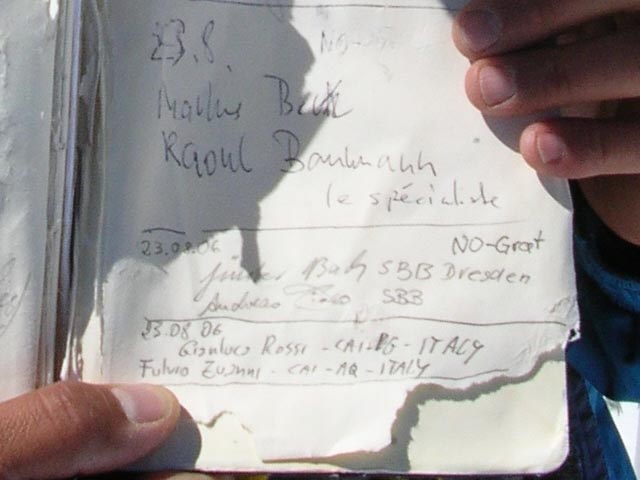 23.8.
Martin Beck
Raoul Baumann
le spécialiste
23.08.06 NO-Grat
Günter Bach SBB Dresden
Andreas SBB
23.08 06
Gianluca Rossi - CAI-PG - ITALY
Fulvio - CAI - AQ - ITALY